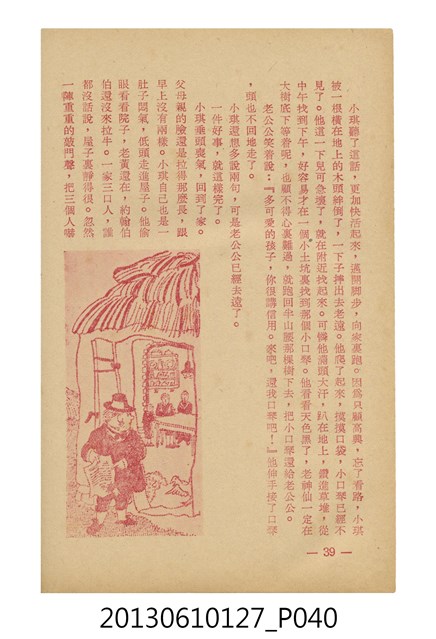 小琪聽了這話，更加快活起來，邁開脚步，向家裏跑。因爲只顧高興，忘了看路，小琪
被一根橫在地上的木頭絆倒了，一下子摔出去老遠。他爬了起來，摸摸口袋，小口琴已經不
見了。他這一下兒可急壞了，就在附近找起來。可憐他滿頭大汗，趴在地上，鑽進草堆，從
中午找到下午，好容易才在一個小土坑裏找到那個小口琴。他看看天色黑了，老神仙一定在
大樹底下等着呢，也顧不得心裏難過，就跑回半山腰那棵樹下去，把小口琴還給老公公。
老公公笑着說：『多可愛的孩子，你很講信用。來吧，還我口琴吧！』他伸手接了口琴
，頭也不回地走了。
小琪還想多說兩句，可是老公公已經去遠了。
一件好事，就這樣完了。
小琪垂頭喪氣，回到了家。
父母親的臉還是拉得那麼長，跟
早上沒有兩樣。小琪自己也是一
肚子悶氣，低頭走進屋子。他偷
眼看看院子，老黃還在，約翰伯
伯還沒來拉牛。一家三口人，誰
都沒話說，屋子裏靜得很。忽然
一陣重重的敲門聲，把三個人嚇
— 39 —
20130610127_P040